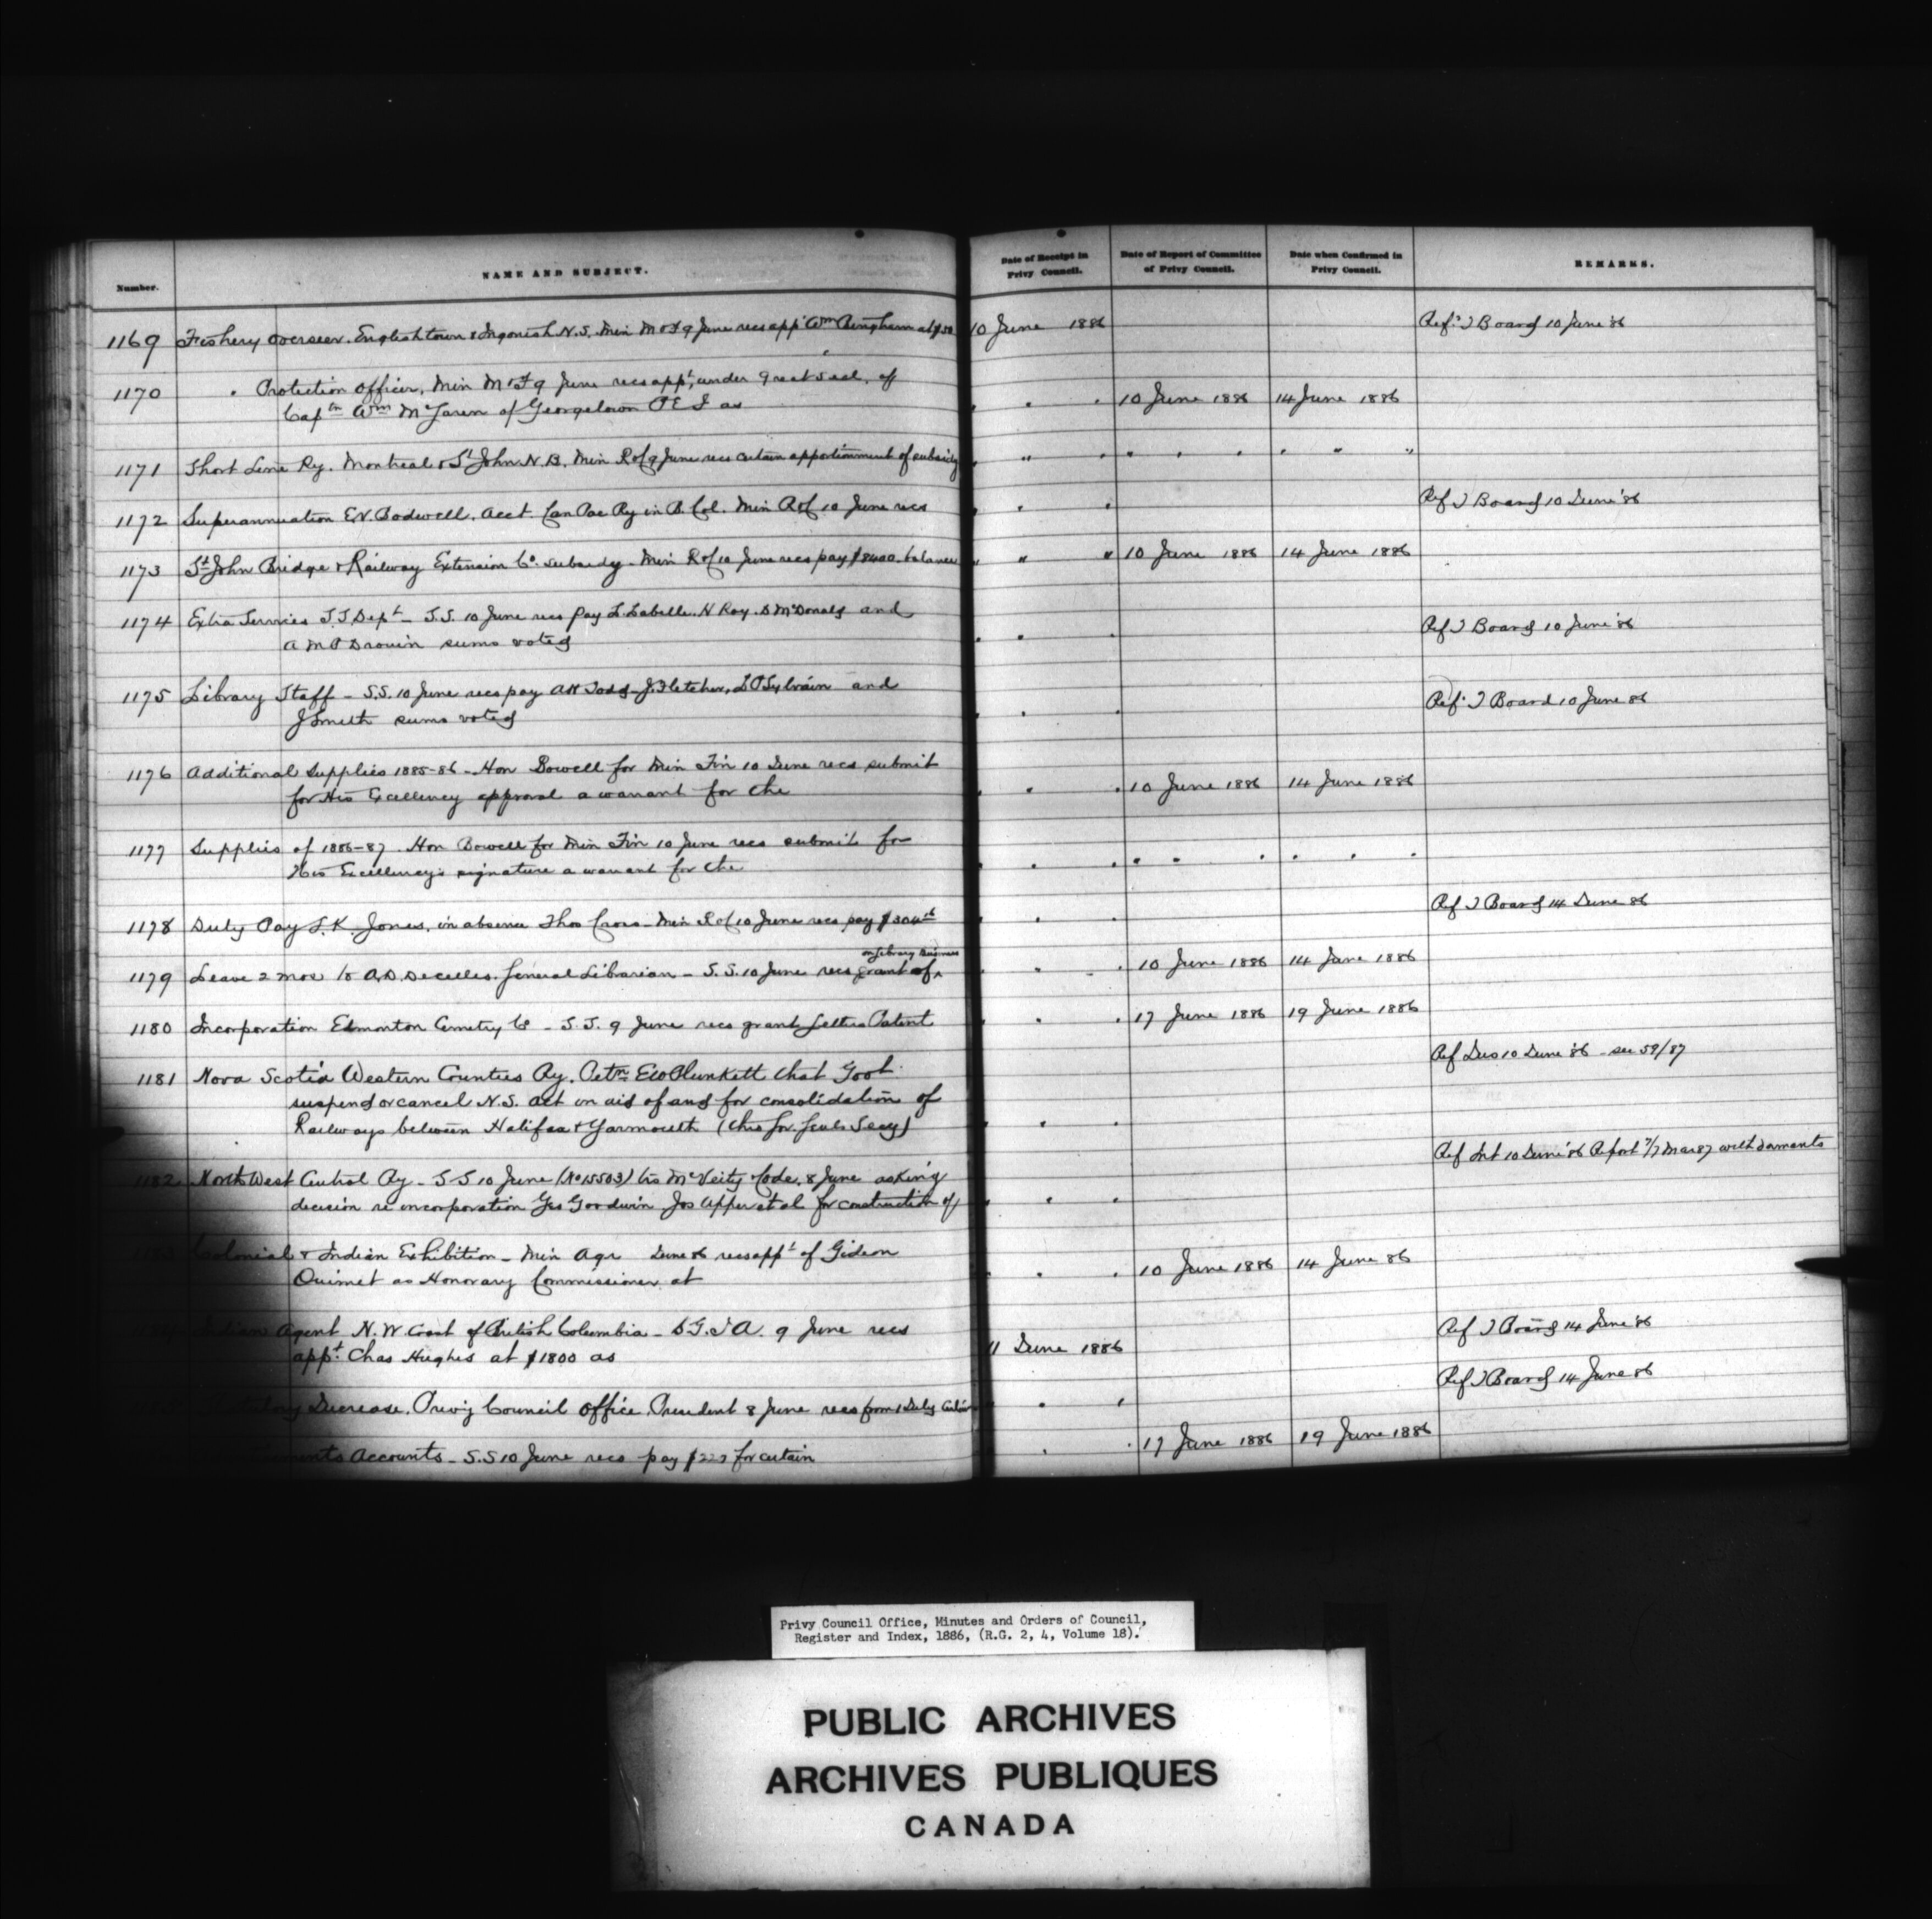 Number.
NAME AND SUBJECT.
Date of Receipt in
Privy Council.
Date of Report of Committee
of Privy Council.
Date when Confirmed in
Privy Council.
REMARKS.
1169 Fishery Overseer. Englishtown & Ingonish N.S. Min M&F 9 June recs appt Wm Bingham at $50 10 June 1886 Refd T Board 10 June '86
1170 " Protection Officer, Min M&F 9 June recs appt, under Great Seal, of
Captn Wm McLaren of Georgetown P E I as " " " 10 June 1886 14 June 1886
1171 Short Line Ry. Montreal & St John N.B. Min R&C 9 June recs certain apportionment of subsidy " " " " " " " " "
1172 Superannuation E.V. Bodwell. Acct. Can Pac Ry in B. Col. Min R&C 10 June recs " " " Ref T Board 10 June '86
1173 St John Bridge & Railway Extension Co. subsidy. Min R&C 10 June recs pay $8400. balance " " " 10 June 1886 14 June 1886
1174 Extra Services I.I. Dept - S.S. 10 June recs pay L. Labelle. H Roy. D McDonald and
A M P Drouin sums voted " " " Ref T Board 10 June '86
1175 Library Staff - S.S. 10 June recs pay A H Todd - J. Fletcher, L P Sylvain and
J Smith sums voted " " " Ref. T Board 10 June 86
1176 Additional Supplies 1885-86 - Hon Bowell for Min Fin 10 June recs submit
for His Excellency approval a warrant for the " " " 10 June 1886 14 June 1886
1177 Supplies of 1886-87. Hon Bowell for Min Fin 10 June recs submit for
His Excellency's signature a warrant for the " " " " " " " " "
1178 Duty Pay L.K. Jones, in absence Thos Cross - Min R&C 10 June recs pay $304 " " " Ref T Board 14 June 86
on Library Business
1179 Leave 2 mos to A.D. Decelles. General Librarian - S.S. 10 June recs grant of " " " 10 June 1886 14 June 1886
1180 Incorporation Edmonton Cemetry Co - S.S. 9 June recs grant Letters Patent " " " 17 June 1886 19 June 1886
1181 Nova Scotia Western Counties Ry. Petn E W Plunkett that Govt Ref Jus 10 June '86 - see 59/87
suspend or cancel N.S. Act in aid of and for consolidation of
Railways between Halifax & Yarmouth (thro Gov. Genls Secy) " " "
1182 North West Central Ry - S S 10 June (No 15503) trs McVeity Code, 8 June asking Ref Int 10 June '86 Report 7/7 Mar 87 with
decision re incorporation Geo Goodwin Jos Upper et al for construction of " " "
Colonial & Indian Exhibition - Min Agr June 86 recs appt of Gideon
Ouimet as Honorary Commissioner at " " " 10 June 1886 14 June 86
Indian Agent N.W. Coast of British Columbia - S G. I A. 9 June recs
appt. Chas Hughes at $1800 as 11 June 1886 Ref T Board 14 June '86
Decrease. Privy Council Office. President 8 June recs from 1 July " " Ref T Board 14 June 86
Accounts - S.S 10 June recs pay $227 for certain " " 17 June 1886 19 June 1886
Privy Council Office, Minutes and Orders of Council,
Register and Index, 1886, (R.G. 2, 4, Volume 18).
PUBLIC ARCHIVES
ARCHIVES PUBLIQUES
CANADA